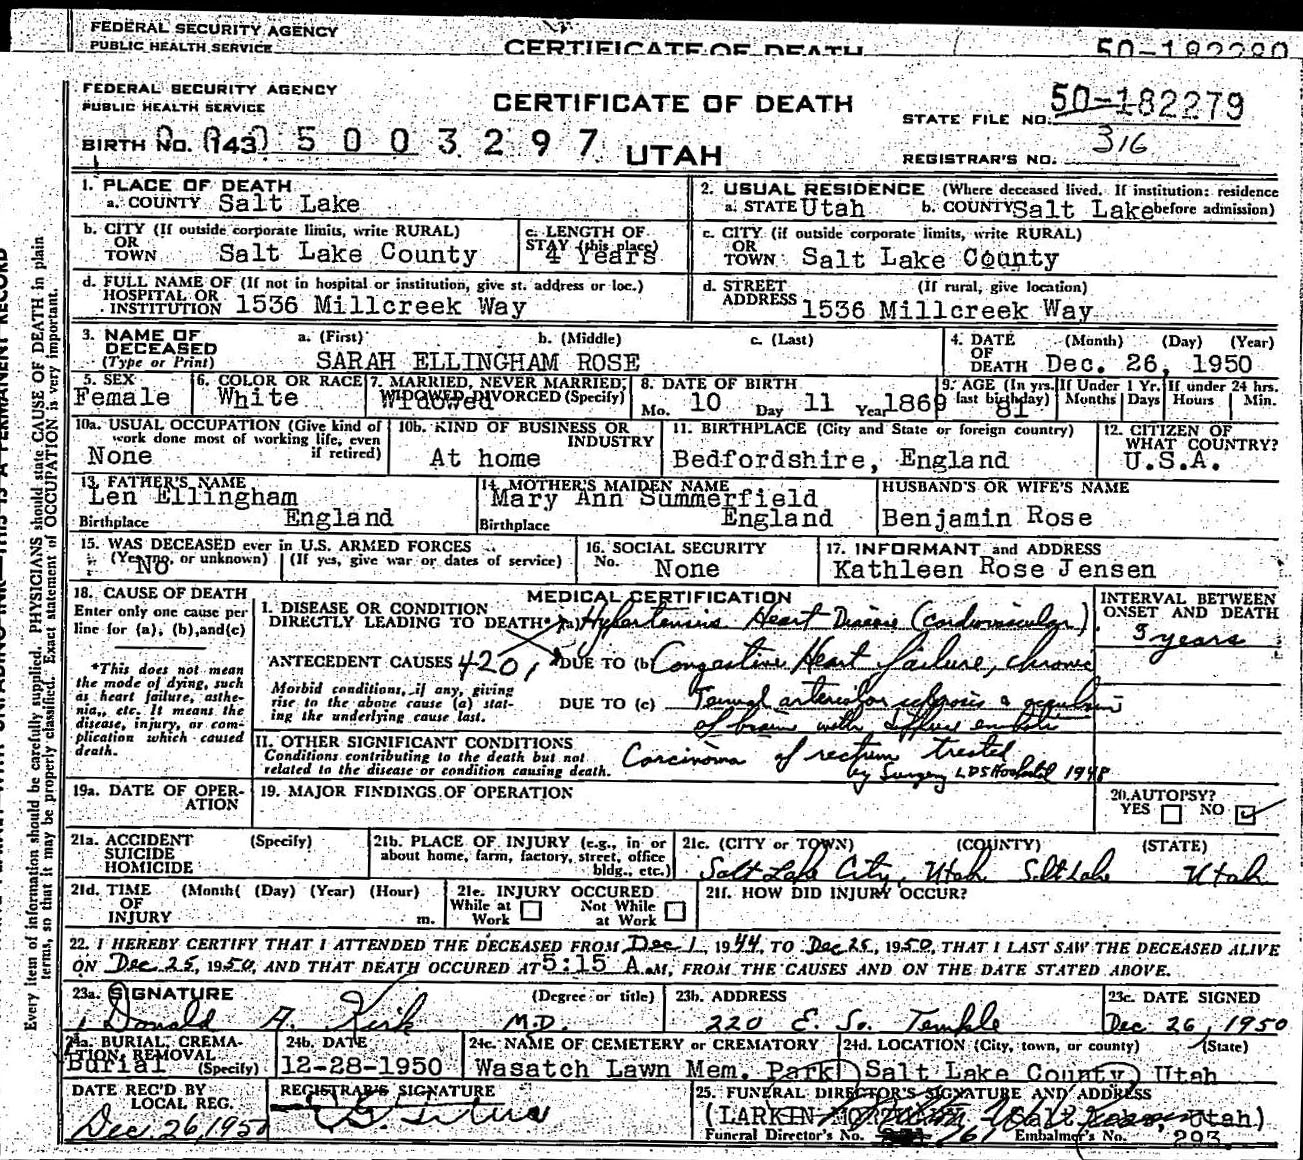 FEDERAL SECURITY AGENCY
PUBLIC HEALTH SERVICE
CERTIFICATE OF DEATH
50-182280
FEDERAL SECURITY AGENCY
PUBLIC HEALTH SERVICE
CERTIFICATE OF DEATH
STATE FILE NO. 50-182279
BIRTH NO. 143 5003297
UTAH
REGISTRAR'S NO. 316
1. PLACE OF DEATH
a. COUNTY Salt Lake
2. USUAL RESIDENCE (Where deceased lived. If institution: residence before admission)
a. STATE Utah b. COUNTY Salt Lake
b. CITY (If outside corporate limits, write RURAL)
OR TOWN Salt Lake County
c. LENGTH OF STAY (this place) 4 Years
c. CITY (if outside corporate limits, write RURAL)
OR TOWN Salt Lake County
d. FULL NAME OF (If not in hospital or institution, give st. address or loc.)
HOSPITAL OR INSTITUTION 1536 Millcreek Way
d. STREET ADDRESS (If rural, give location)
1536 Millcreek Way
3. NAME OF DECEASED (Type or Print)
a. (First) b. (Middle) c. (Last)
SARAH ELLINGHAM ROSE
4. DATE OF DEATH (Month) (Day) (Year)
Dec. 26, 1950
5. SEX
Female
6. COLOR OR RACE
White
7. MARRIED, NEVER MARRIED, WIDOWED, DIVORCED (Specify)
Widowed
8. DATE OF BIRTH
Mo. 10 Day 11 Year 1869
9. AGE (In yrs. last birthday) 81
If Under 1 Yr. Months Days
If under 24 hrs. Hours Min.
10a. USUAL OCCUPATION (Give kind of work done most of working life, even if retired)
None
10b. KIND OF BUSINESS OR INDUSTRY
At home
11. BIRTHPLACE (City and State or foreign country)
Bedfordshire, England
12. CITIZEN OF WHAT COUNTRY?
U.S.A.
13. FATHER'S NAME
Len Ellingham
Birthplace England
14. MOTHER'S MAIDEN NAME
Mary Ann Summerfield
Birthplace England
HUSBAND'S OR WIFE'S NAME
Benjamin Rose
15. WAS DECEASED ever in U.S. ARMED FORCES
(Yes, no, or unknown) No (If yes, give war or dates of service)
16. SOCIAL SECURITY
No. None
17. INFORMANT and ADDRESS
Kathleen Rose Jensen
18. CAUSE OF DEATH
Enter only one cause per line for (a), (b), and (c)
*This does not mean the mode of dying, such as heart failure, asthenia, etc. It means the disease, injury, or complication which caused death.
MEDICAL CERTIFICATION
INTERVAL BETWEEN ONSET AND DEATH
I. DISEASE OR CONDITION DIRECTLY LEADING TO DEATH* (a) Hypertensive Heart Disease (Cardiovascular)
5 years
ANTECEDENT CAUSES 420, DUE TO (b) Congestive Heart failure, chronic
Morbid conditions, if any, giving rise to the above cause (a) stating the underlying cause last.
DUE TO (c) sclerosis
of brain with emboli
II. OTHER SIGNIFICANT CONDITIONS
Conditions contributing to the death but not related to the disease or condition causing death.
Carcinoma of rectum treated
by Surgery LDS Hospital 1948
19a. DATE OF OPERATION
19. MAJOR FINDINGS OF OPERATION
20. AUTOPSY?
YES NO
21a. ACCIDENT SUICIDE HOMICIDE (Specify)
21b. PLACE OF INJURY (e.g., in or about home, farm, factory, street, office bldg., etc.)
21c. (CITY or TOWN) (COUNTY) (STATE)
Salt Lake City, Utah Salt Lake Utah
21d. TIME OF INJURY (Month( (Day) (Year) (Hour) m.
21e. INJURY OCCURED
While at Work Not While at Work
21f. HOW DID INJURY OCCUR?
22. I HEREBY CERTIFY THAT I ATTENDED THE DECEASED FROM Dec 1, 1944, TO Dec 25, 1950, THAT I LAST SAW THE DECEASED ALIVE
ON Dec 25, 1950, AND THAT DEATH OCCURED AT 5:15 A.M, FROM THE CAUSES AND ON THE DATE STATED ABOVE.
23a. SIGNATURE (Degree or title)
Donald A. Kirk M.D.
23b. ADDRESS
220 E. So. Temple
23c. DATE SIGNED
Dec. 26, 1950
24a. BURIAL, CREMATION, REMOVAL (Specify)
Burial
24b. DATE
12-28-1950
24c. NAME OF CEMETERY or CREMATORY
Wasatch Lawn Mem. Park
24d. LOCATION (City, town, or county) (State)
Salt Lake County Utah
DATE REC'D BY LOCAL REG.
Dec. 26, 1950
REGISTRAR'S SIGNATURE
25. FUNERAL DIRECTOR'S SIGNATURE AND ADDRESS
(LARKIN Utah)
Funeral Director's No. Embalmer's No. 293
Every item of information should be carefully supplied. PHYSICIANS should state CAUSE OF DEATH in plain
terms, so that it may be properly classified. Exact statement of OCCUPATION is very important.
THIS IS A PERMANENT RECORD